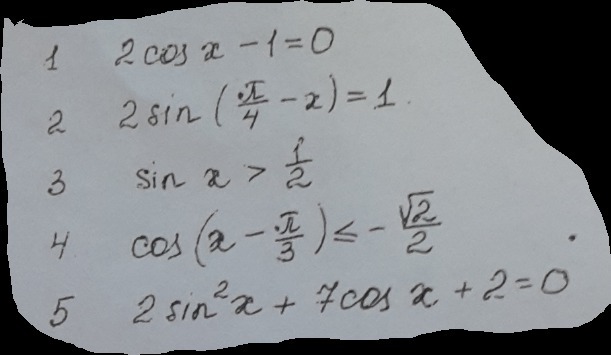 1 2cos x - 1 = 0
2 2sin (π/4 - x) = 1.
3 sin x > 1/2
4 cos(x - π/3) ≤ - √2/2
5 2sin²x + 7cos x + 2 = 0